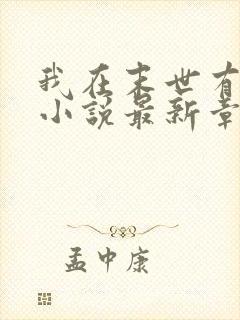 我在末世有
小说最新章
孟中康